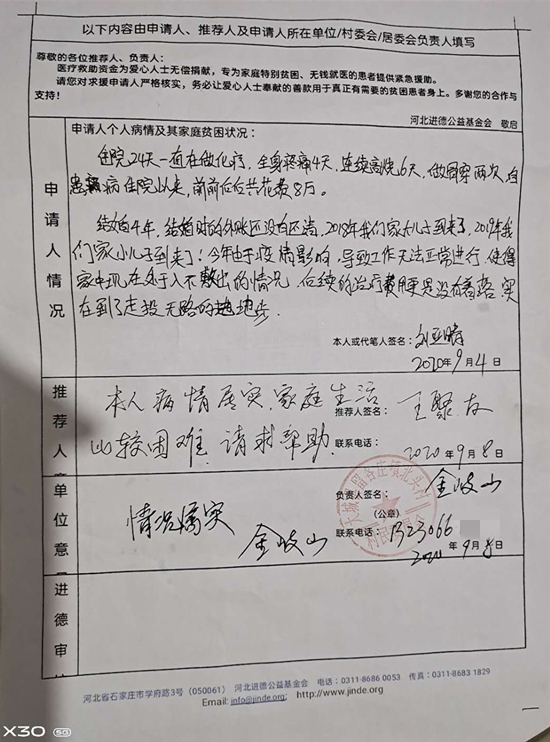 以下内容由申请人、推荐人及申请人所在单位/村委会/居委会负责人填写
尊敬的各位推荐人、负责人:
医疗救助资金为爱心人士无偿捐献,专为家庭特别贫困、无钱就医的患者提供紧急援助。
请您对求援申请人严格核实,务必让爱心人士奉献的善款用于真正有需要的贫困患者身上。多谢您的合作与
支持!
河北进德公益基金会 敬启
申请人情况
申请人个人病情及其家庭贫困状况:
住院24天一直在做化疗,全身疼痛4天,连续高烧6天,做骨穿两次,自
患病住院以来,前前后后共花费8万。
结婚4年,结婚时的外账还没有还清,2018年我们家大儿子到来了,2019年我
们家小儿子到来了!今年由于疫情影响,导致工作无法正常进行,使得
家中现在处于入不敷出的情况,后续的治疗费用更是没有着落,实
在到了走投无路的地步。
本人或代笔人签名:
2020年9月4日
推荐人意
本人病情属实,家庭生活
推荐人签名:王聚友
比较困难,请求帮助。
联系电话:
2020年9月8日
单位意
情况属实
金岐山
负责人签名:金岐山
(公章)
联系电话:1323066
年9月8日
进德审
河北省石家庄市学府路3号(050061) 河北进德公益基金会 电话:0311-8686 0053 传真:0311-8683 1829
Email: info@jinde.org; http://www.jinde.org
X30 5G